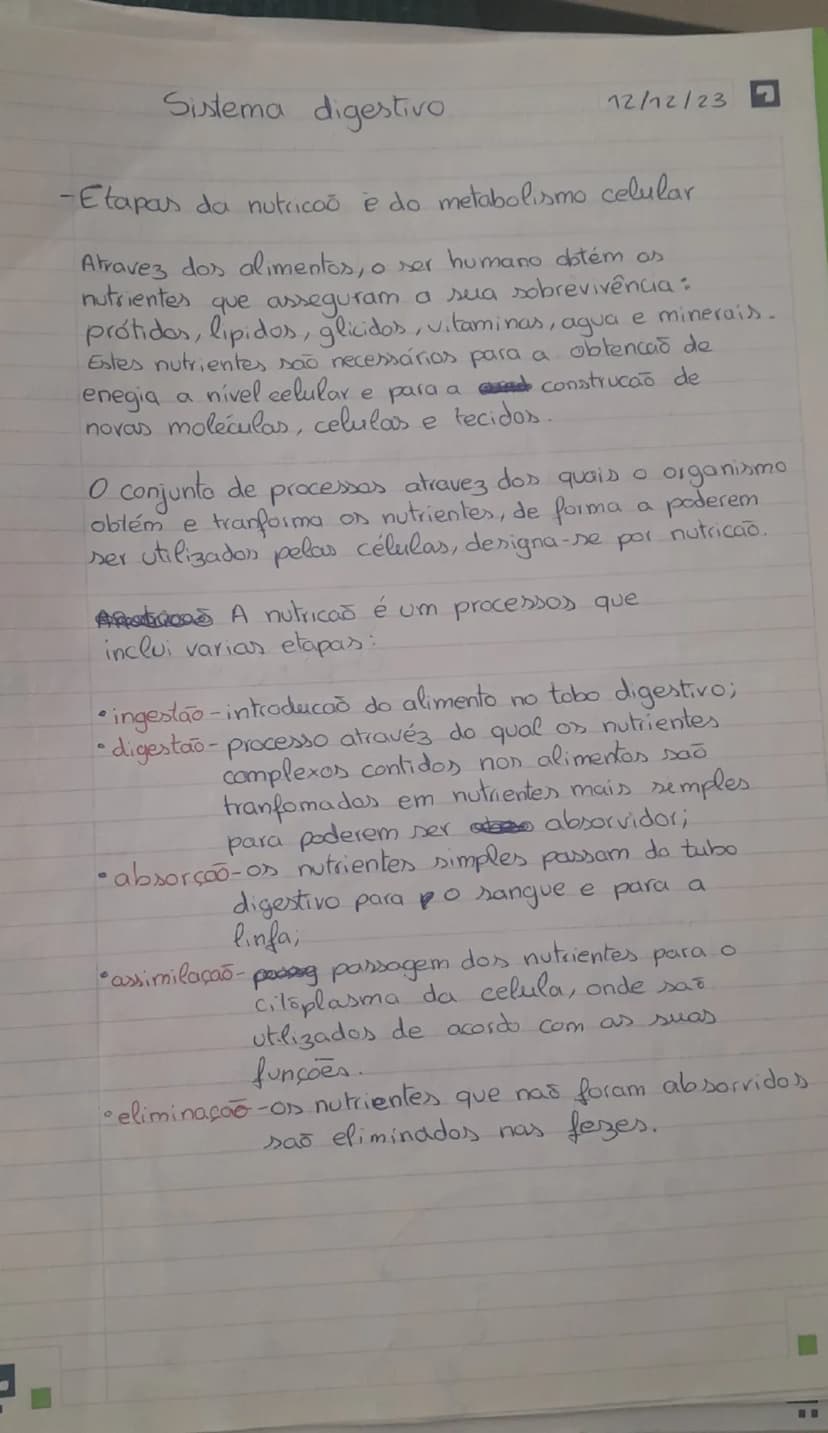 Sistema digestivo 12/12/23
- Etapas da nutricaõ e do metabolismo celular
Atravez dos alimentos, o ser humano obtém os
nutrientes que asseguram a sua sobrevivência:
prótidos, lipidos, glicidos, vitaminas, agua e minerais.
Estes nutrientes saõ necessários para a obtencaõ de
enegia a nível celular e para a construcaõ de
novas moléculas, celulas e tecidos.
O conjunto de processos atravez dos quais o organismo
obtém e tranforma os nutrientes, de forma a poderem
ser utilizados pelas células, designa-se por nutricaõ.
A nutricaõ é um processos que
inclui varias etapas:
• ingestão - introducaõ do alimento no tobo digestivo;
• digestaõ - processo atravéz do qual os nutrientes
complexos contidos nos alimentos saõ
tranfomados em nutrientes mais semples
para poderem ser absorvidos;
• absorçaõ - os nutrientes simples passam do tubo
digestivo para o sangue e para a
linfa;
• assimilaçaõ - passagem dos nutrientes para o
citoplasma da celula, onde saõ
utilizados de acordo com as suas
funçoẽs.
• eliminaçaõ - os nutrientes que naõ foram absorvidos
saõ eliminados nas fezes.